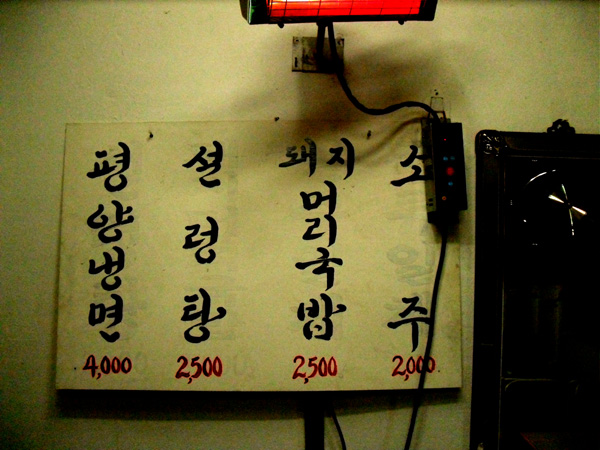 평양냉면
4,000
설렁탕
2,500
돼지머리국밥
2,500
소주
2,000